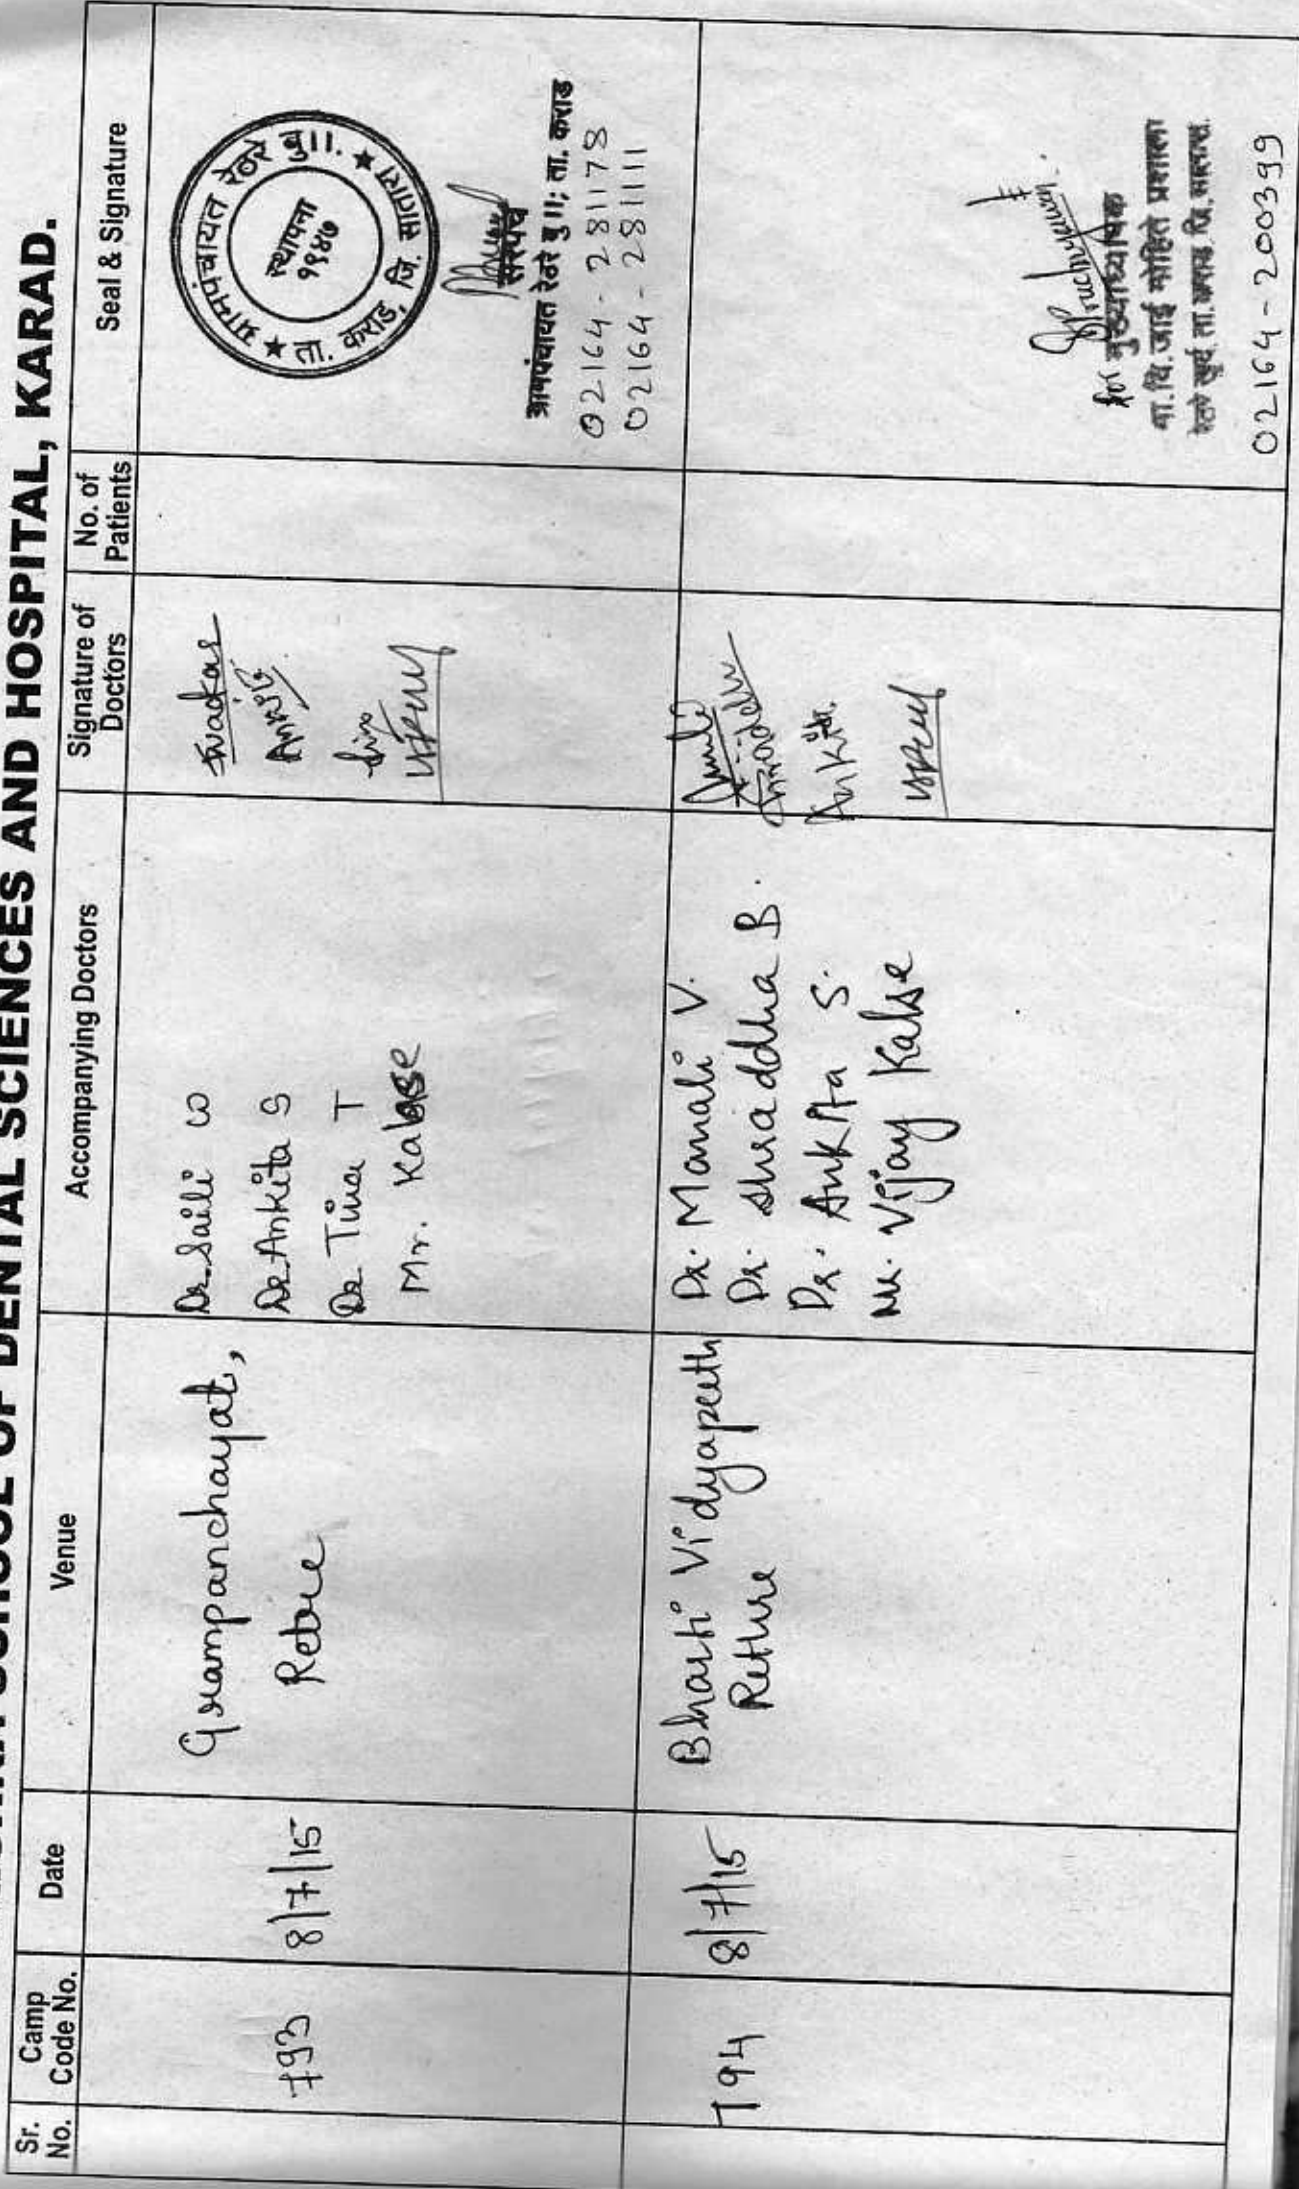 SCHOOL OF DENTAL SCIENCES AND HOSPITAL, KARAD.
Sr. No.
Camp Code No.
Date
Venue
Accompanying Doctors
Signature of Doctors
No. of Patients
Seal & Signature
793
8/7/15
Grampanchayat,
Retre
Dr Saili W
Dr Ankita S
Dr Tina T
Mr. Kalse
Ankita
ग्रामपंचायत रेठरे बु।।.
★ ता. कराड, जि. सातारा ★
स्थापना
१९४७
सरपंच
ग्रामपंचायत रेठरे बु।।; ता. कराड
02164 - 281178
02164 - 281111
794
8/7/15
Bharti Vidyapeeth
Rethre
Dr. Manali V.
Dr. Shraddha B.
Dr. Ankita S.
Mr. Vijay Kalse
Ankita
मुख्याध्यापक
मा.वि.जाई मोहिते प्रशाला
रेठरे खुर्द ता.कराड जि.सातारा.
02164 - 200399